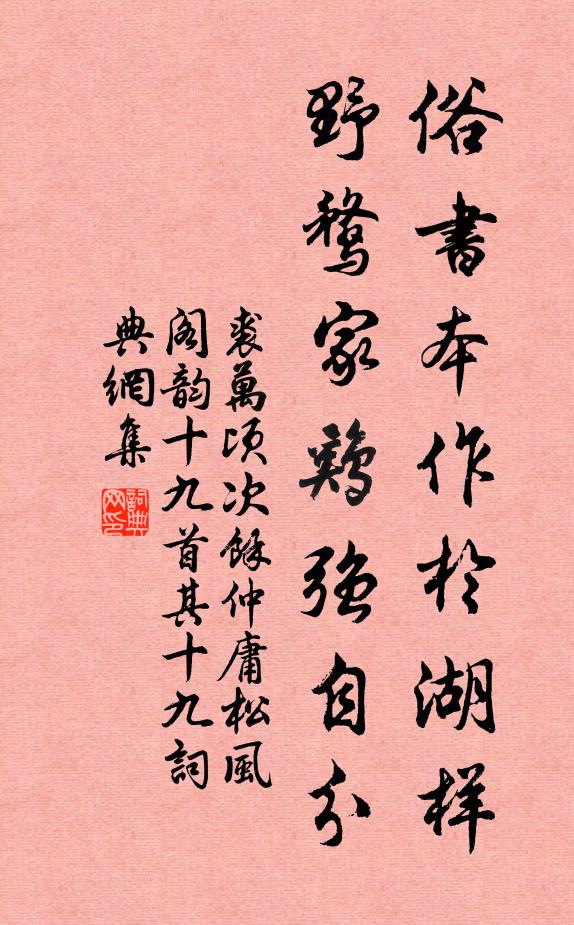 俗書本作於湖样
野鶩家鷄强自分
裘萬頃次餘仲庸松風
阁韵十九首其十九詞
典網集
詞典
网印